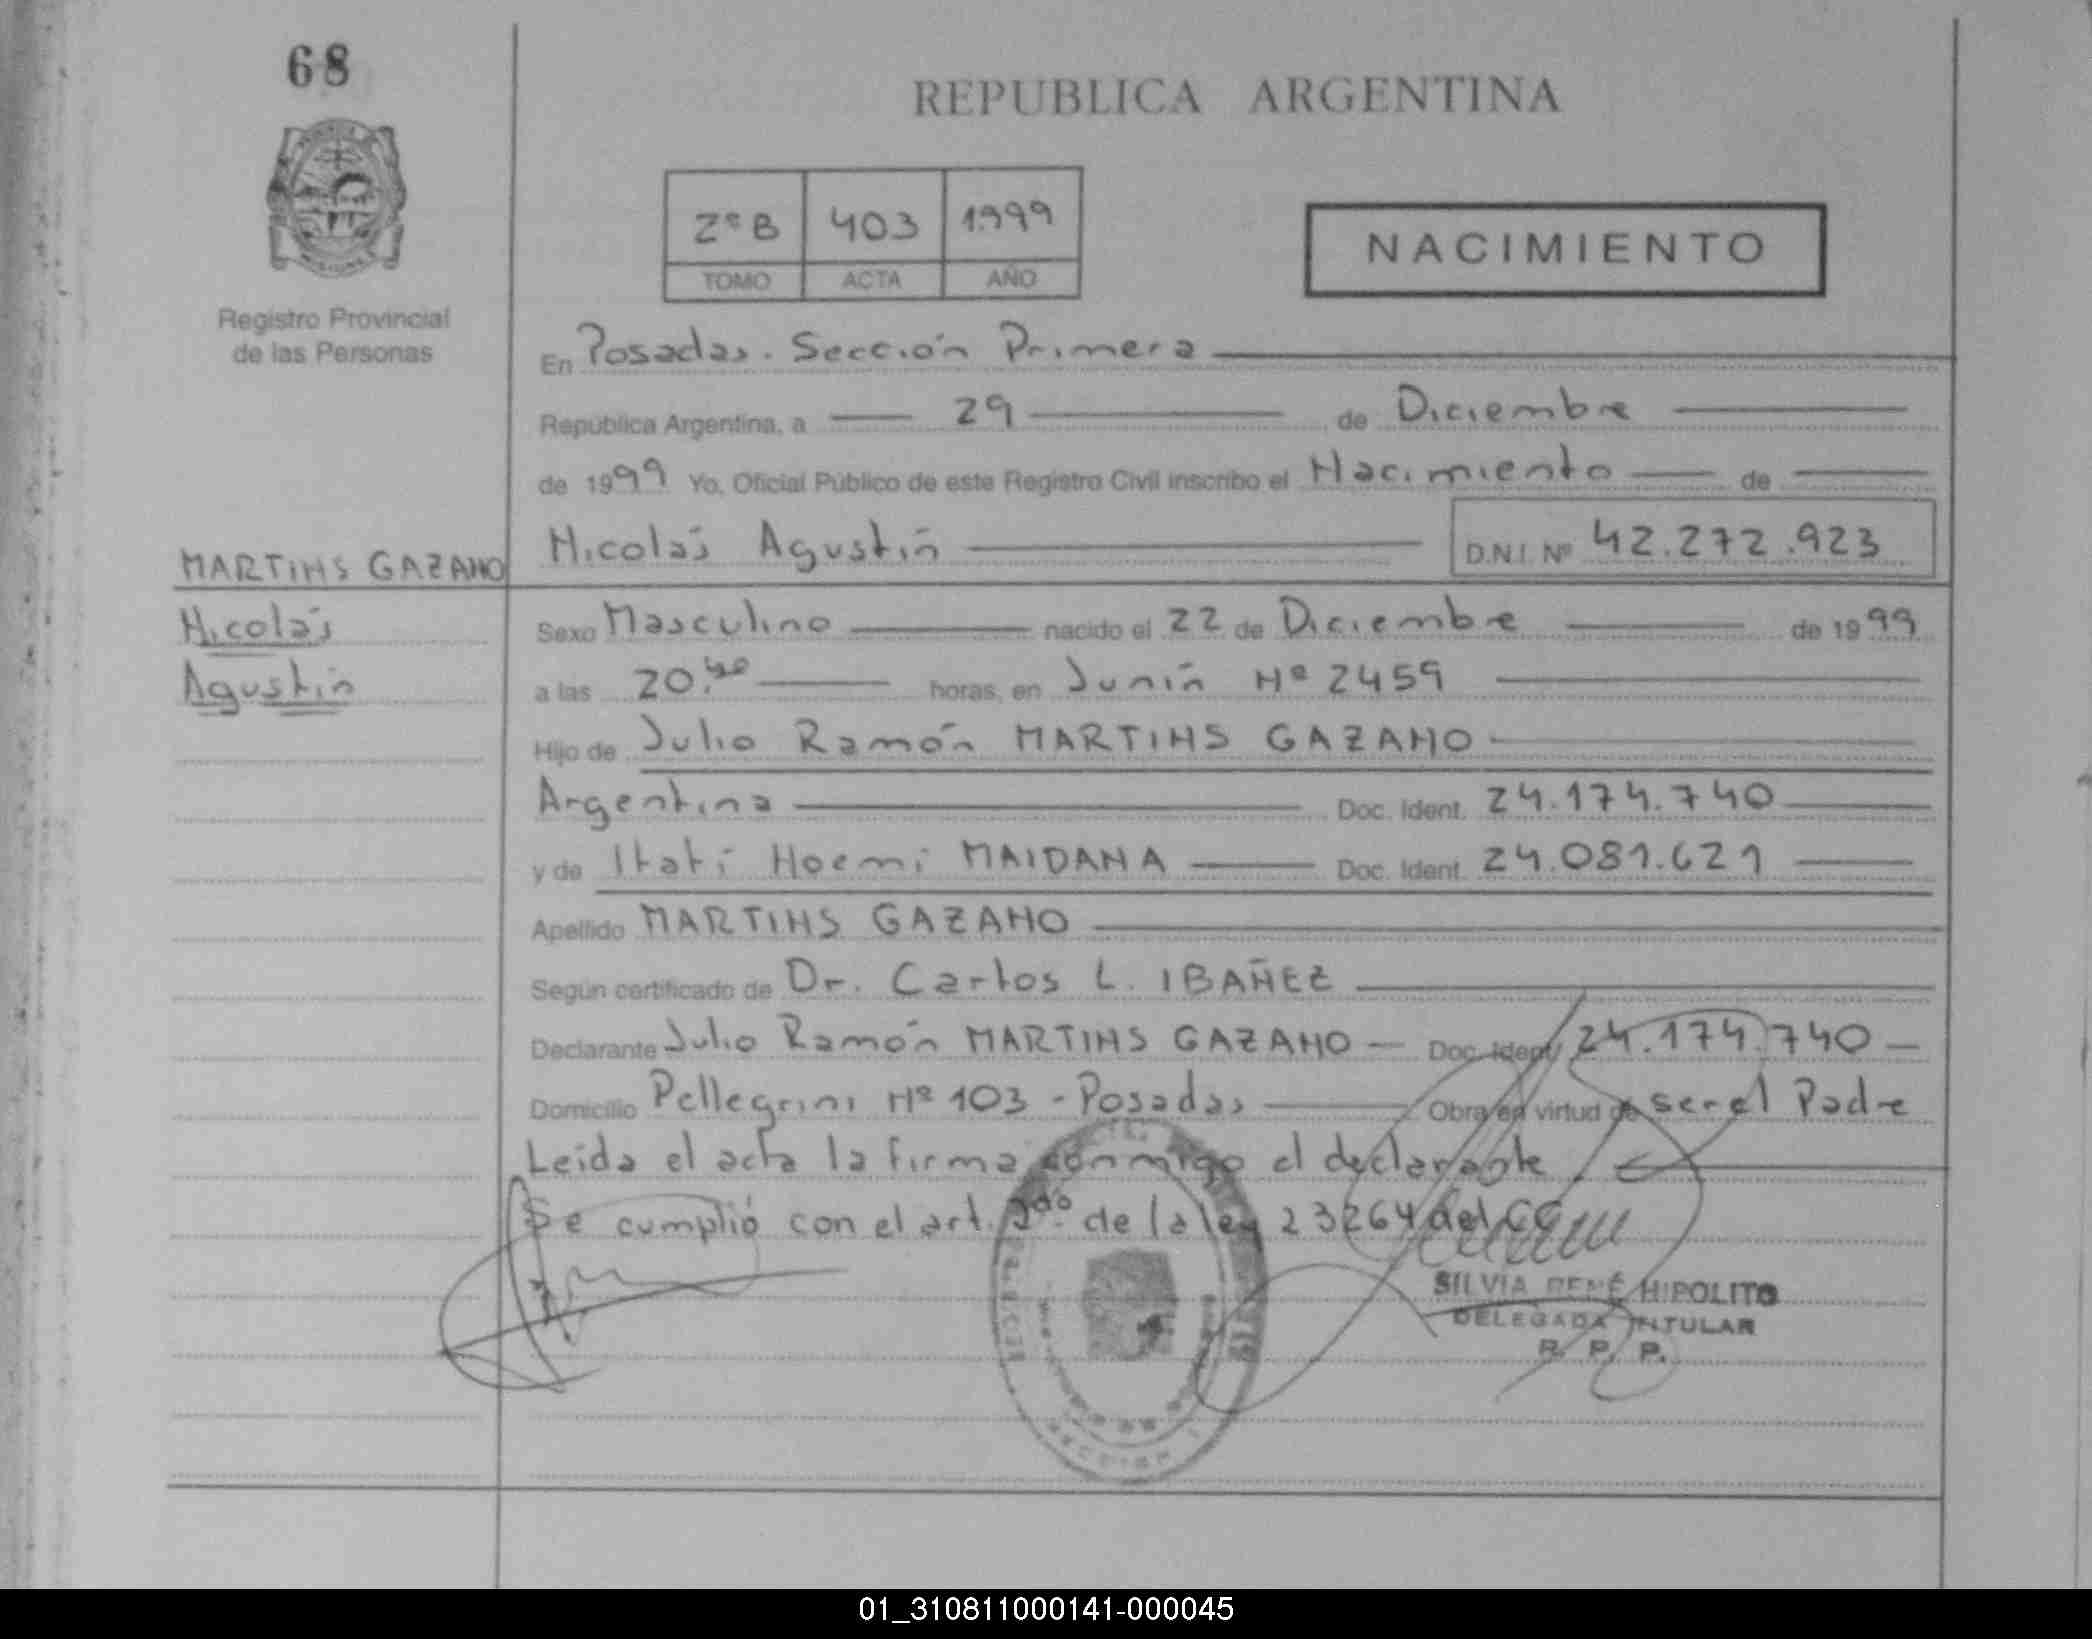 68
REPUBLICA ARGENTINA
2º B 403 1999
TOMO ACTA AÑO
NACIMIENTO
Registro Provincial
de las Personas
En Posadas. Sección Primera
República Argentina, a 29 de Diciembre
de 1999 Yo, Oficial Público de este Registro Civil inscribo el Nacimiento de
MARTINS GAZANO Nicolás Agustín D.N.I. Nº 42.272.923
Nicolás Sexo Masculino nacido el 22 de Diciembre de 1999
Agustín a las 20:40 horas, en Junín Nº 2459
Hijo de Julio Ramón MARTINS GAZANO
Argentina Doc. Ident. 24.174.740
y de Itatí Noemi MAIDANA Doc. Ident. 24.081.621
Apellido MARTINS GAZANO
Según certificado de Dr. Carlos L. IBAÑEZ
Declarante Julio Ramón MARTINS GAZANO Doc. Ident. 24.174.740
Domicilio Pellegrini Nº 103 - Posadas Obra en virtud de ser el Padre
Leida el acta la firma conmigo el declarante
Se cumplió con el art. 2do de la ley 23264 del CC
SILVIA RENÉ HIPOLITO
DELEGADA TITULAR
R. P. P.
01_310811000141-000045